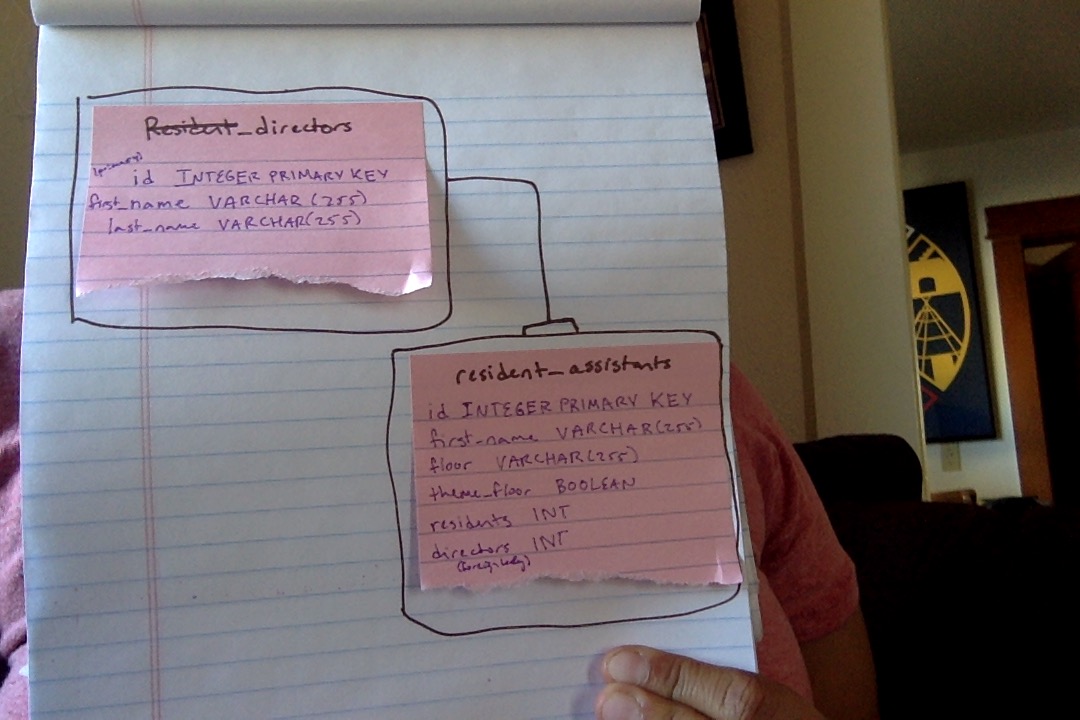 Resident_directors
(primary)
id INTEGER PRIMARY KEY
first_name VARCHAR (255)
last_name VARCHAR(255)
resident_assistants
id INTEGER PRIMARY KEY
first_name VARCHAR(255)
floor VARCHAR(255)
theme_floor BOOLEAN
residents INT
directors INT
(foreign key)